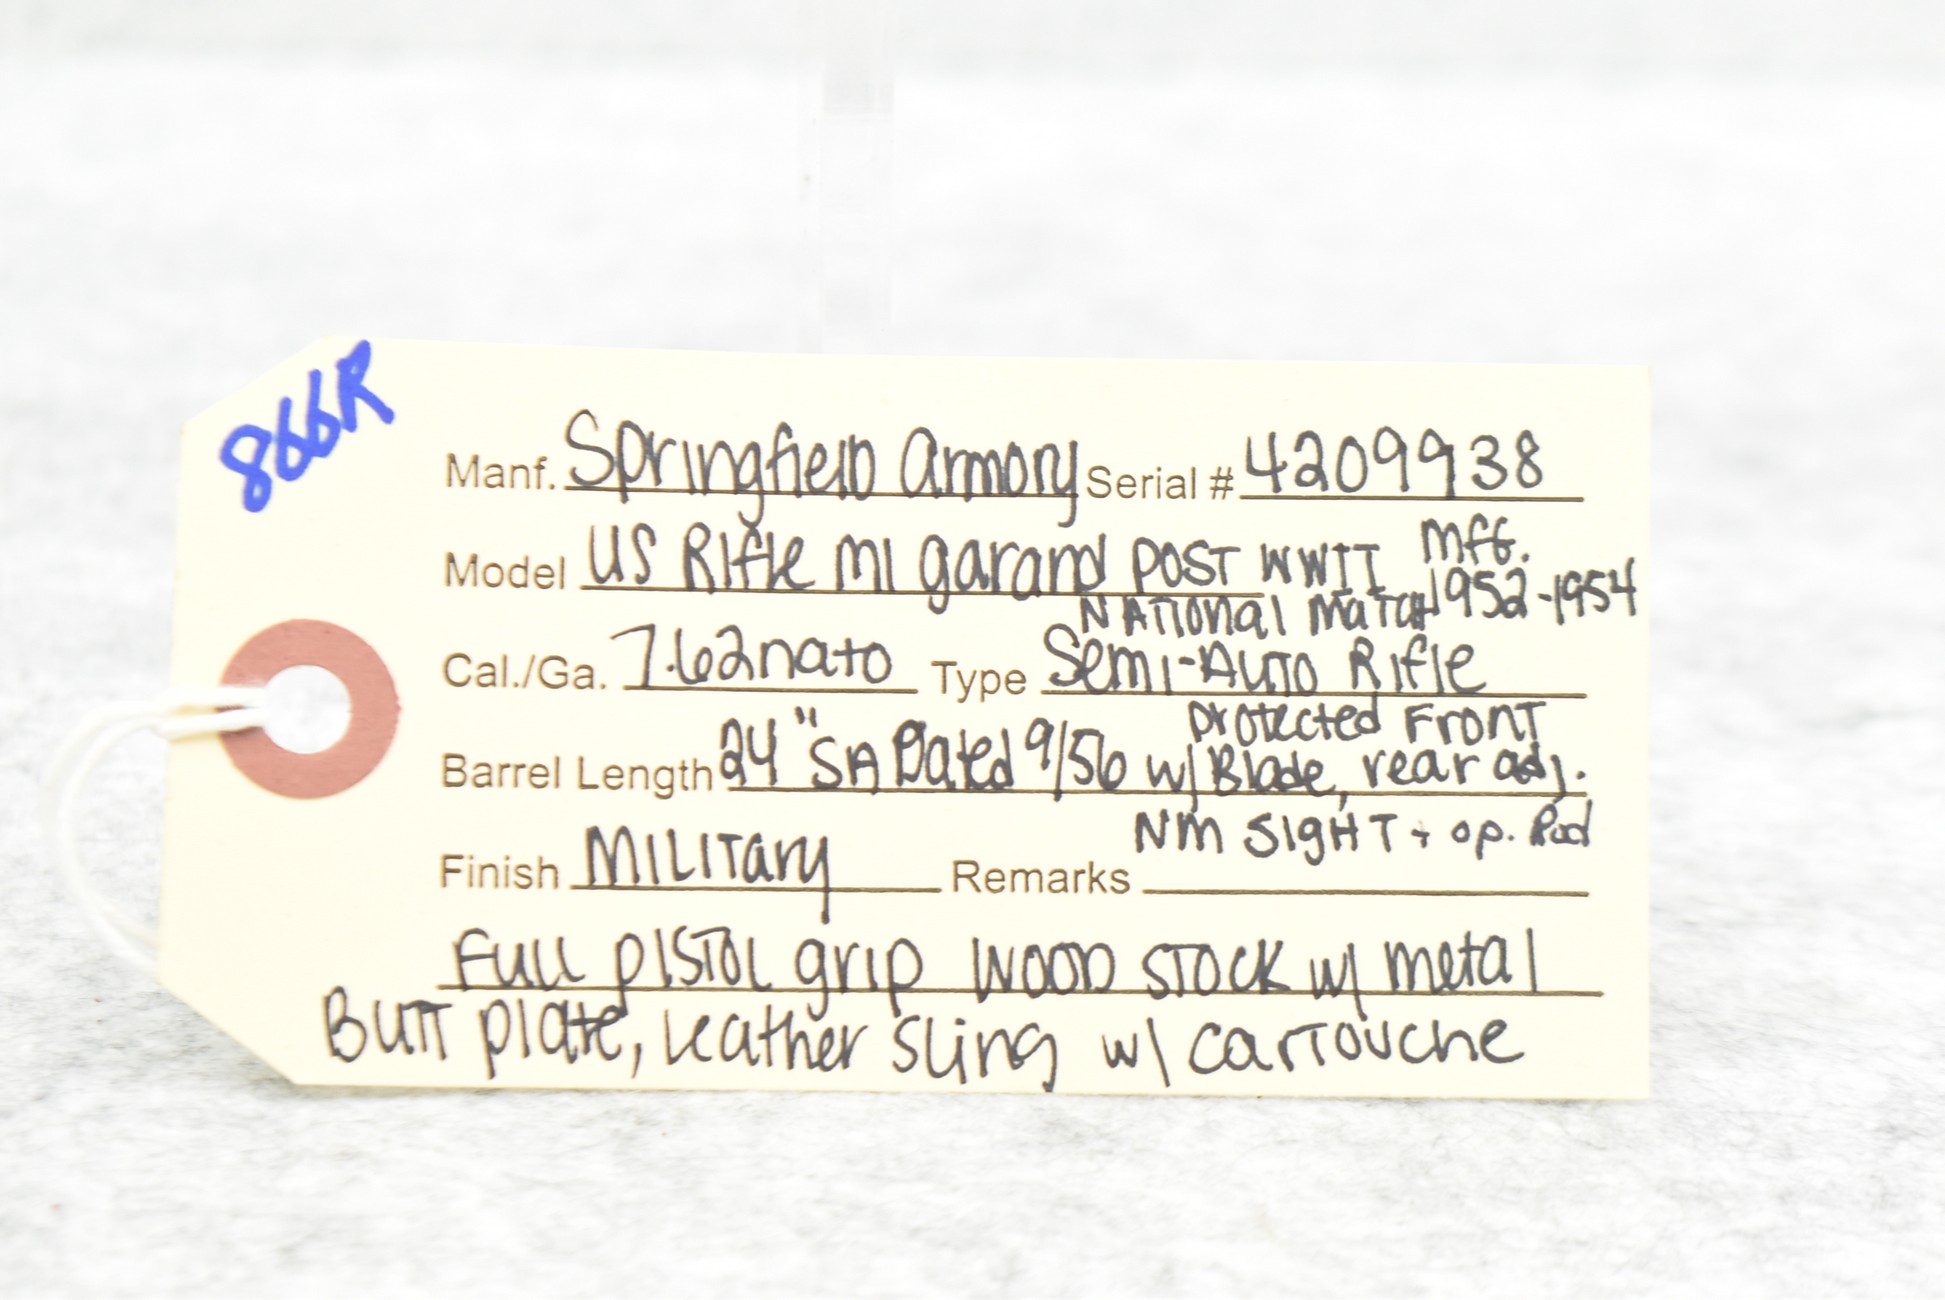 866R
Manf. Springfield Armory Serial # 4209938
Model US Rifle M1 garand POST WWII Mfg.
National Match 1952-1954
Cal./Ga. 7.62nato Type Semi-Auto Rifle
Protected Front
Barrel Length 24" SA Dated 9/56 w/ Blade, rear adj.
NM SIGHT + op. Rod
Finish Military Remarks
Full pistol grip wood stock w/ metal
Butt plate, Leather sling w/ cartouche